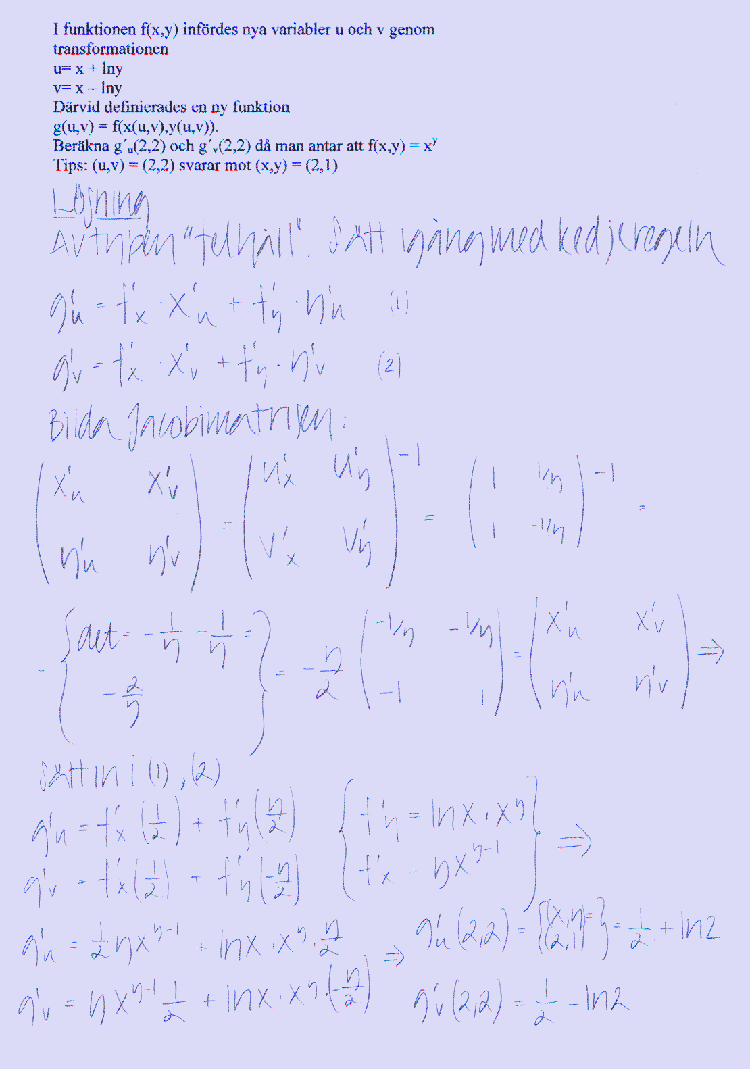 I funktionen f(x,y) infördes nya variabler u och v genom
transformationen
u= x + lny
v= x - lny
Därvid definierades en ny funktion
g(u,v) = f(x(u,v),y(u,v)).
Beräkna g´u(2,2) och g´v(2,2) då man antar att f(x,y) = x^y
Tips: (u,v) = (2,2) svarar mot (x,y) = (2,1)
Lösning
Av typen "felhåll". Sätt igång med kedjeregeln
g'u = f'x · x'u + f'y · y'u (1)
g'v = f'x · x'v + f'y · y'v (2)
Bilda Jacobimatrisen:
(x'u x'v / y'u y'v) = (u'x u'y / v'x v'y)^-1 = (1 1/y / 1 -1/y)^-1 =
= {det = -1/y - 1/y = -2/y} = -y/2 (-1/y -1/y / -1 1) = (x'u x'v / y'u y'v) ⇒
Sätt in i (1), (2)
g'u = f'x (1/2) + f'y (y/2) {f'y = lnx · x^y
g'v = f'x (1/2) + f'y (-y/2) f'x = yx^y-1} ⇒
g'u = 1/2 yx^y-1 + lnx · x^y · y/2 ⇒ g'u (2,2) = {(x,y)= (2,1)} = 1/2 + ln2
g'v = yx^y-1 1/2 + lnx · x^y · (-y/2) g'v (2,2) = 1/2 - ln2